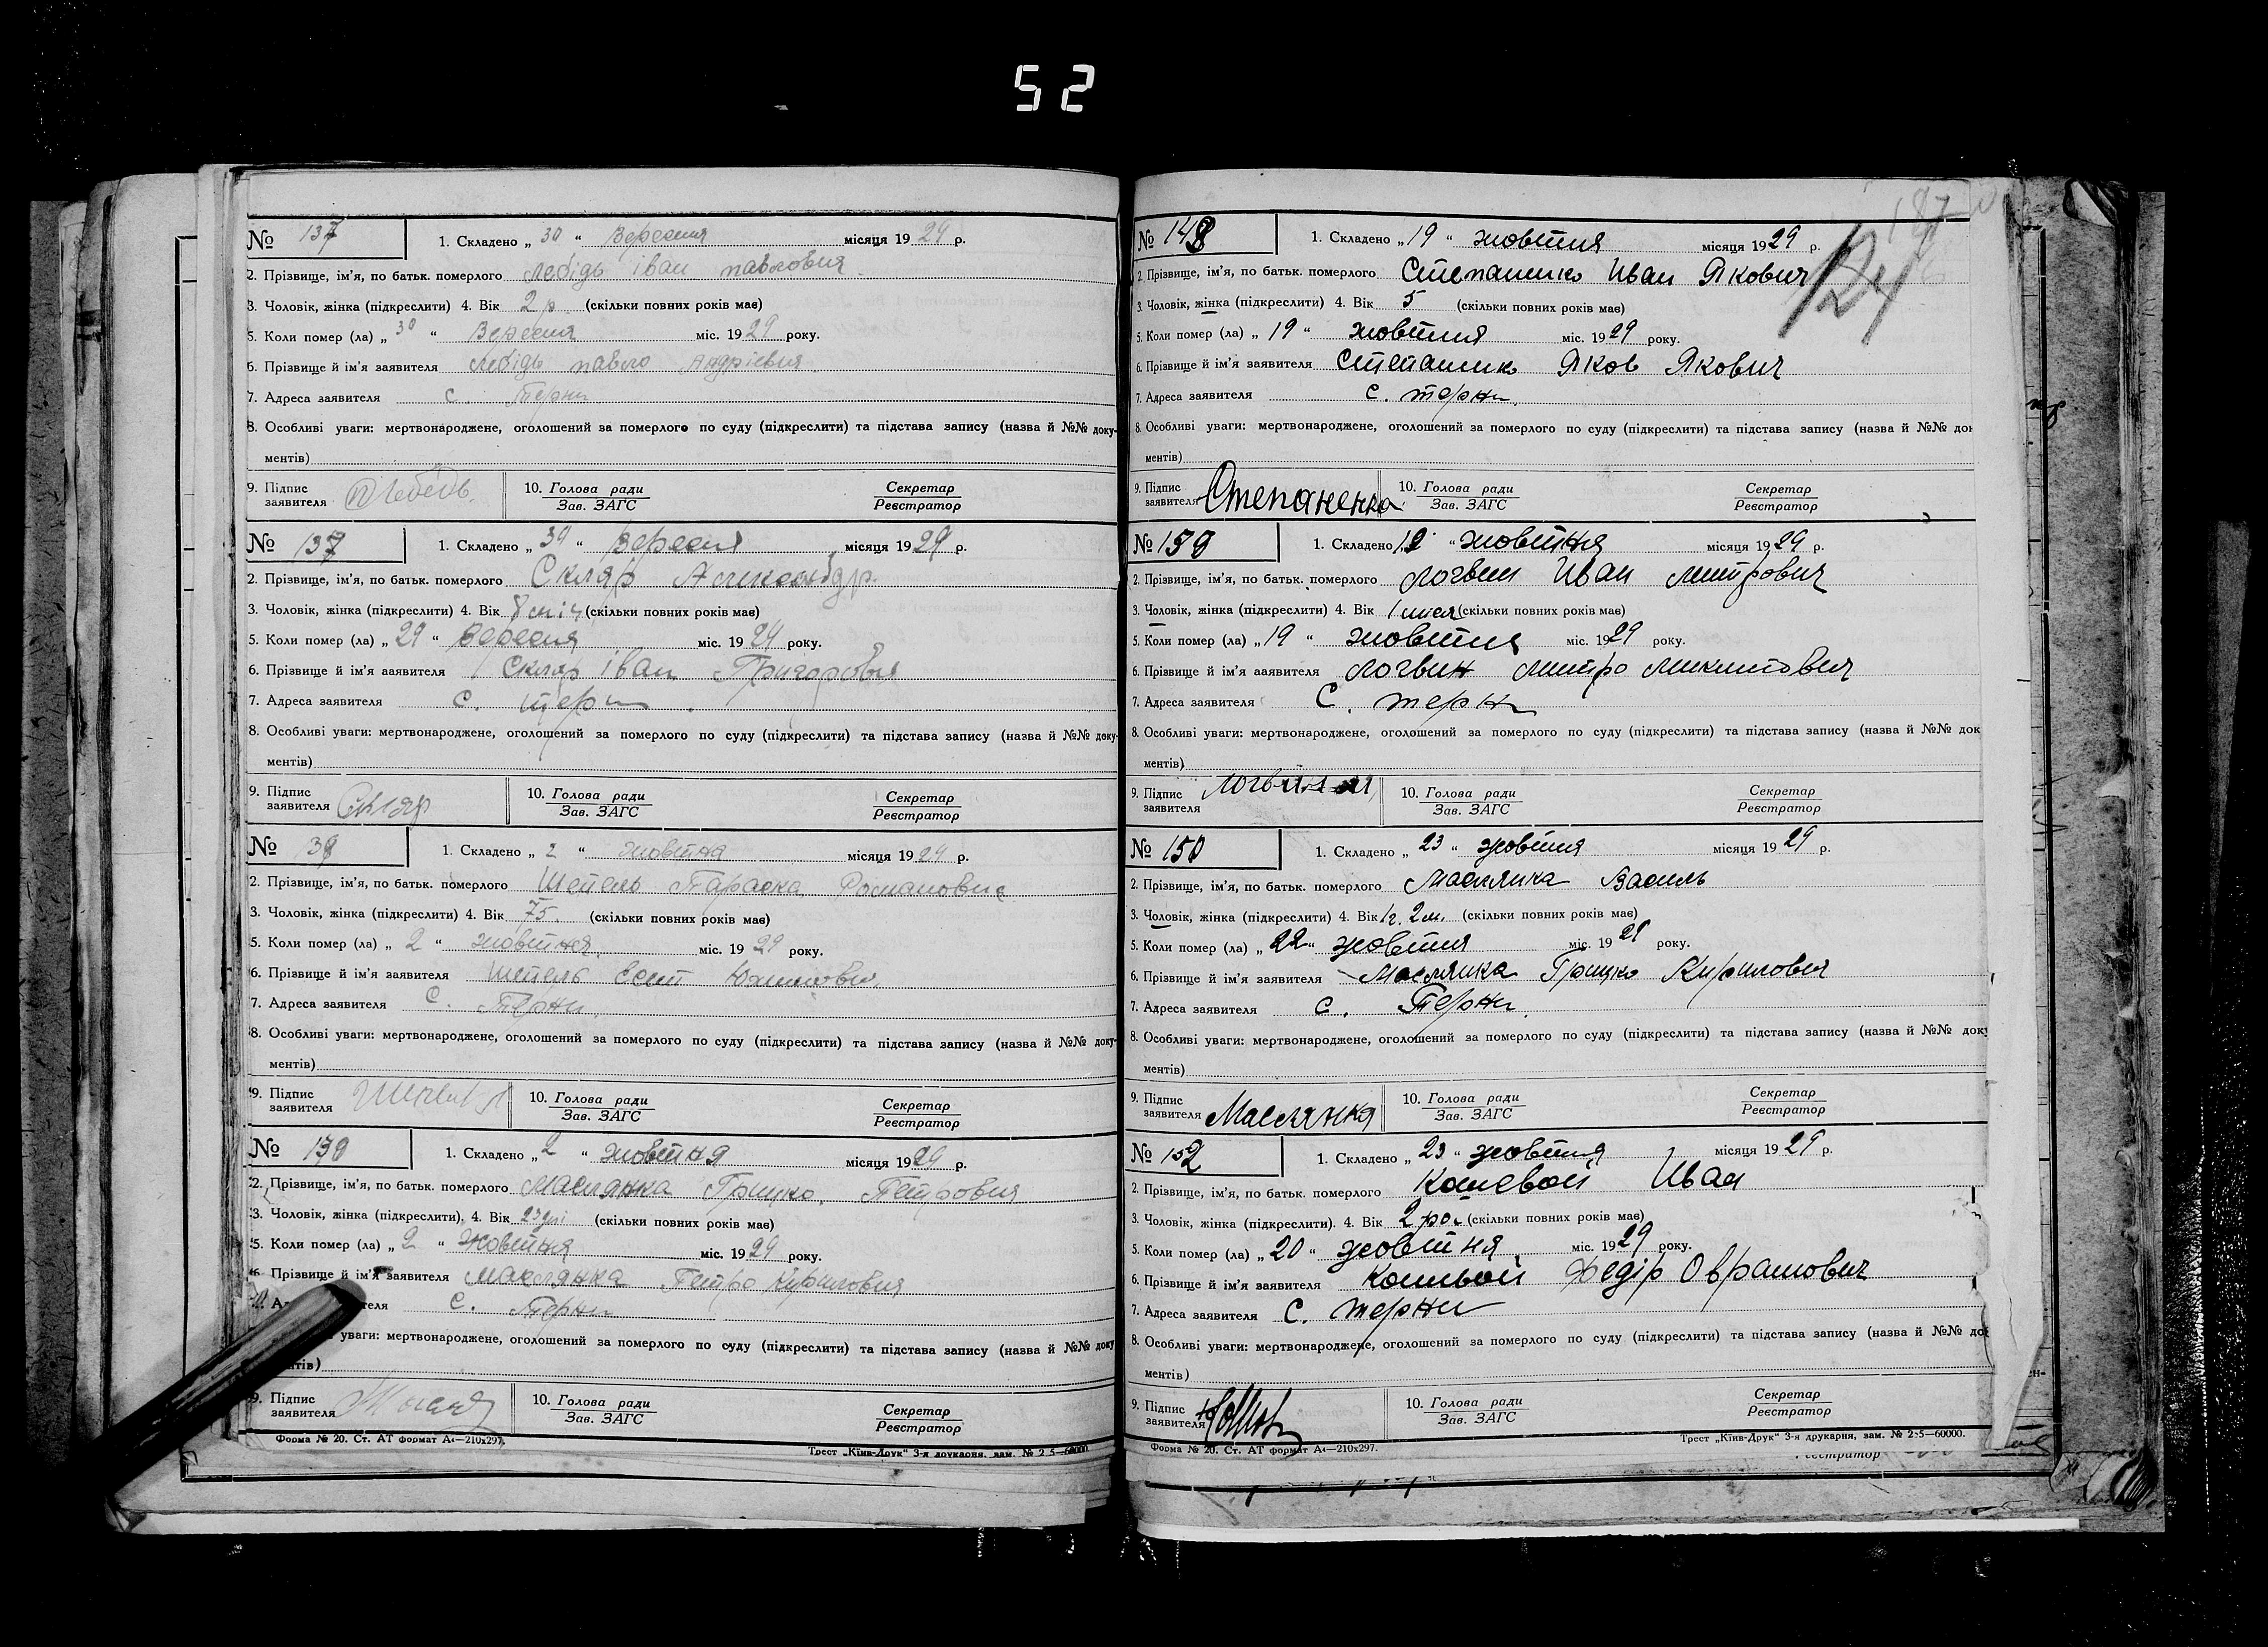 52
№ 137 1. Складено „ 30 “ Вересня місяця 1929 р.
2. Прізвище, ім'я, по батьк. померлого Лебідь іван павлович
3. Чоловік, жінка (підкреслити) 4. Вік 2 р. (скільки повних років має)
5. Коли помер (ла) „ 30 “ Вересня міс. 1929 року.
6. Прізвище й ім'я заявителя Лебідь павло Андріевич
7. Адреса заявителя с. Терни
8. Особливі уваги: мертвонароджене, оголошений за померлого по суду (підкреслити) та підстава запису (назва й №№ доку-
ментів)
9. Підпис заявителя Лебедь. 10. Голова ради Зав. ЗАГС Секретар Реєстратор
№ 137 1. Складено „ 30 “ Вересня місяця 1929 р.
2. Прізвище, ім'я, по батьк. померлого Скляр Александр
3. Чоловік, жінка (підкреслити) 4. Вік 8 міс (скільки повних років має)
5. Коли помер (ла) „ 29 “ Вересня міс. 1929 року.
6. Прізвище й ім'я заявителя Скляр іван Григорович
7. Адреса заявителя с. терни
8. Особливі уваги: мертвонароджене, оголошений за померлого по суду (підкреслити) та підстава запису (назва й №№ доку-
ментів)
9. Підпис заявителя Скляр 10. Голова ради Зав. ЗАГС Секретар Реєстратор
№ 39 1. Складено „ 2 “ жовтня місяця 1929 р.
2. Прізвище, ім'я, по батьк. померлого Шепель Параска Романовна
3. Чоловік, жінка (підкреслити) 4. Вік 75. (скільки повних років має)
5. Коли помер (ла) „ 2 “ жовтня міс. 1929 року.
6. Прізвище й ім'я заявителя Шепель
7. Адреса заявителя с. Терни.
8. Особливі уваги: мертвонароджене, оголошений за померлого по суду (підкреслити) та підстава запису (назва й №№ доку-
ментів)
9. Підпис заявителя 10. Голова ради Зав. ЗАГС Секретар Реєстратор
№ 139 1. Складено „ 2 “ жовтня місяця 1929 р.
2. Прізвище, ім'я, по батьк. померлого Маслянка Грицко Петрович
3. Чоловік, жінка (підкреслити). 4. Вік 23 дні (скільки повних років має)
5. Коли помер (ла) „ 2 “ жовтня міс. 1929 року.
6. Прізвище й ім'я заявителя Маслянка Петро Кирилович
с. Терни
уваги: мертвонароджене, оголошений за померлого по суду (підкреслити) та підстава запису (назва й №№ доку
ментів)
9. Підпис заявителя 10. Голова ради Зав. ЗАГС Секретар Реєстратор
Форма № 20. Ст. АТ формат А4—210x297. Трест „Київ-Друк“ 3-я друкарня, зам. № 2 5—60000.
187
№ 148 1. Складено „ 19 “ жовтня місяця 1929 р.
2. Прізвище, ім'я, по батьк. померлого Степаненко Иван Якович
3. Чоловік, жінка (підкреслити) 4. Вік 5 (скільки повних років має)
5. Коли помер (ла) „ 19 “ жовтня міс. 1929 року.
6. Прізвище й ім'я заявителя Степаненко Яков Якович
7. Адреса заявителя с. терни.
8. Особливі уваги: мертвонароджене, оголошений за померлого по суду (підкреслити) та підстава запису (назва й №№ док
ментів)
9. Підпис заявителя Степаненка 10. Голова ради Зав. ЗАГС Секретар Реєстратор
№ 159 1. Складено 19 “ жовтня місяця 1929 р.
2. Прізвище, ім'я, по батьк. померлого Логвин Иван Митрович
3. Чоловік, жінка (підкреслити) 4. Вік 1 (скільки повних років має)
5. Коли помер (ла) „ 19 “ жовтня міс. 1929 року.
6. Прізвище й ім'я заявителя Логвин Митро Микитович
7. Адреса заявителя С. терни
8. Особливі уваги: мертвонароджене, оголошений за померлого по суду (підкреслити) та підстава запису (назва й №№ док
ментів)
9. Підпис заявителя 10. Голова ради Зав. ЗАГС Секретар Реєстратор
№ 150 1. Складено „ 23 “ жовтня місяця 1929 р.
2. Прізвище, ім'я, по батьк. померлого Маслянка Василь
3. Чоловік, жінка (підкреслити) 4. Вік 1г. 2м. (скільки повних років має)
5. Коли помер (ла) „ 22 “ жовтня міс. 1929 року.
6. Прізвище й ім'я заявителя Маслянка Грицко Кирилович
7. Адреса заявителя с. Терни.
8. Особливі уваги: мертвонароджене, оголошений за померлого по суду (підкреслити) та підстава запису (назва й №№ доку
ментів)
9. Підпис заявителя Маслянка 10. Голова ради Зав. ЗАГС Секретар Реєстратор
№ 152 1. Складено „ 23 “ жовтня місяця 1929 р.
2. Прізвище, ім'я, по батьк. померлого Кошевой Иван
3. Чоловік, жінка (підкреслити). 4. Вік 2 ро. (скільки повних років має)
5. Коли помер (ла) „ 20 “ жовтня міс. 1929 року.
6. Прізвище й ім'я заявителя Кошевой Федір Оврамович
7. Адреса заявителя с. терни
8. Особливі уваги: мертвонароджене, оголошений за померлого по суду (підкреслити) та підстава запису (назва й №№ до
ментів)
9. Підпис заявителя 10. Голова ради Зав. ЗАГС Секретар Реєстратор
Форма № 20. Ст. АТ формат А4—210x297. Трест „Київ-Друк“ 3-я друкарня, зам. № 2:5—60000.
Реєстратор